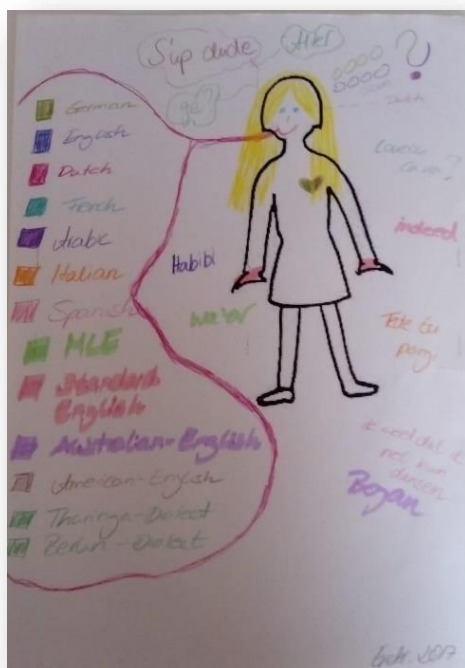 S'up dude
Alter
gè?
?
Dutch
German
English
Dutch
French
Arabic
Italian
Spanish
MLE
Standard
English
Australian-English
American-English
Thuringa-Dialect
Berlin-Dialect
Habibi
indeed
ik weet dat ik
niet kan
dansen
Bogan
2017